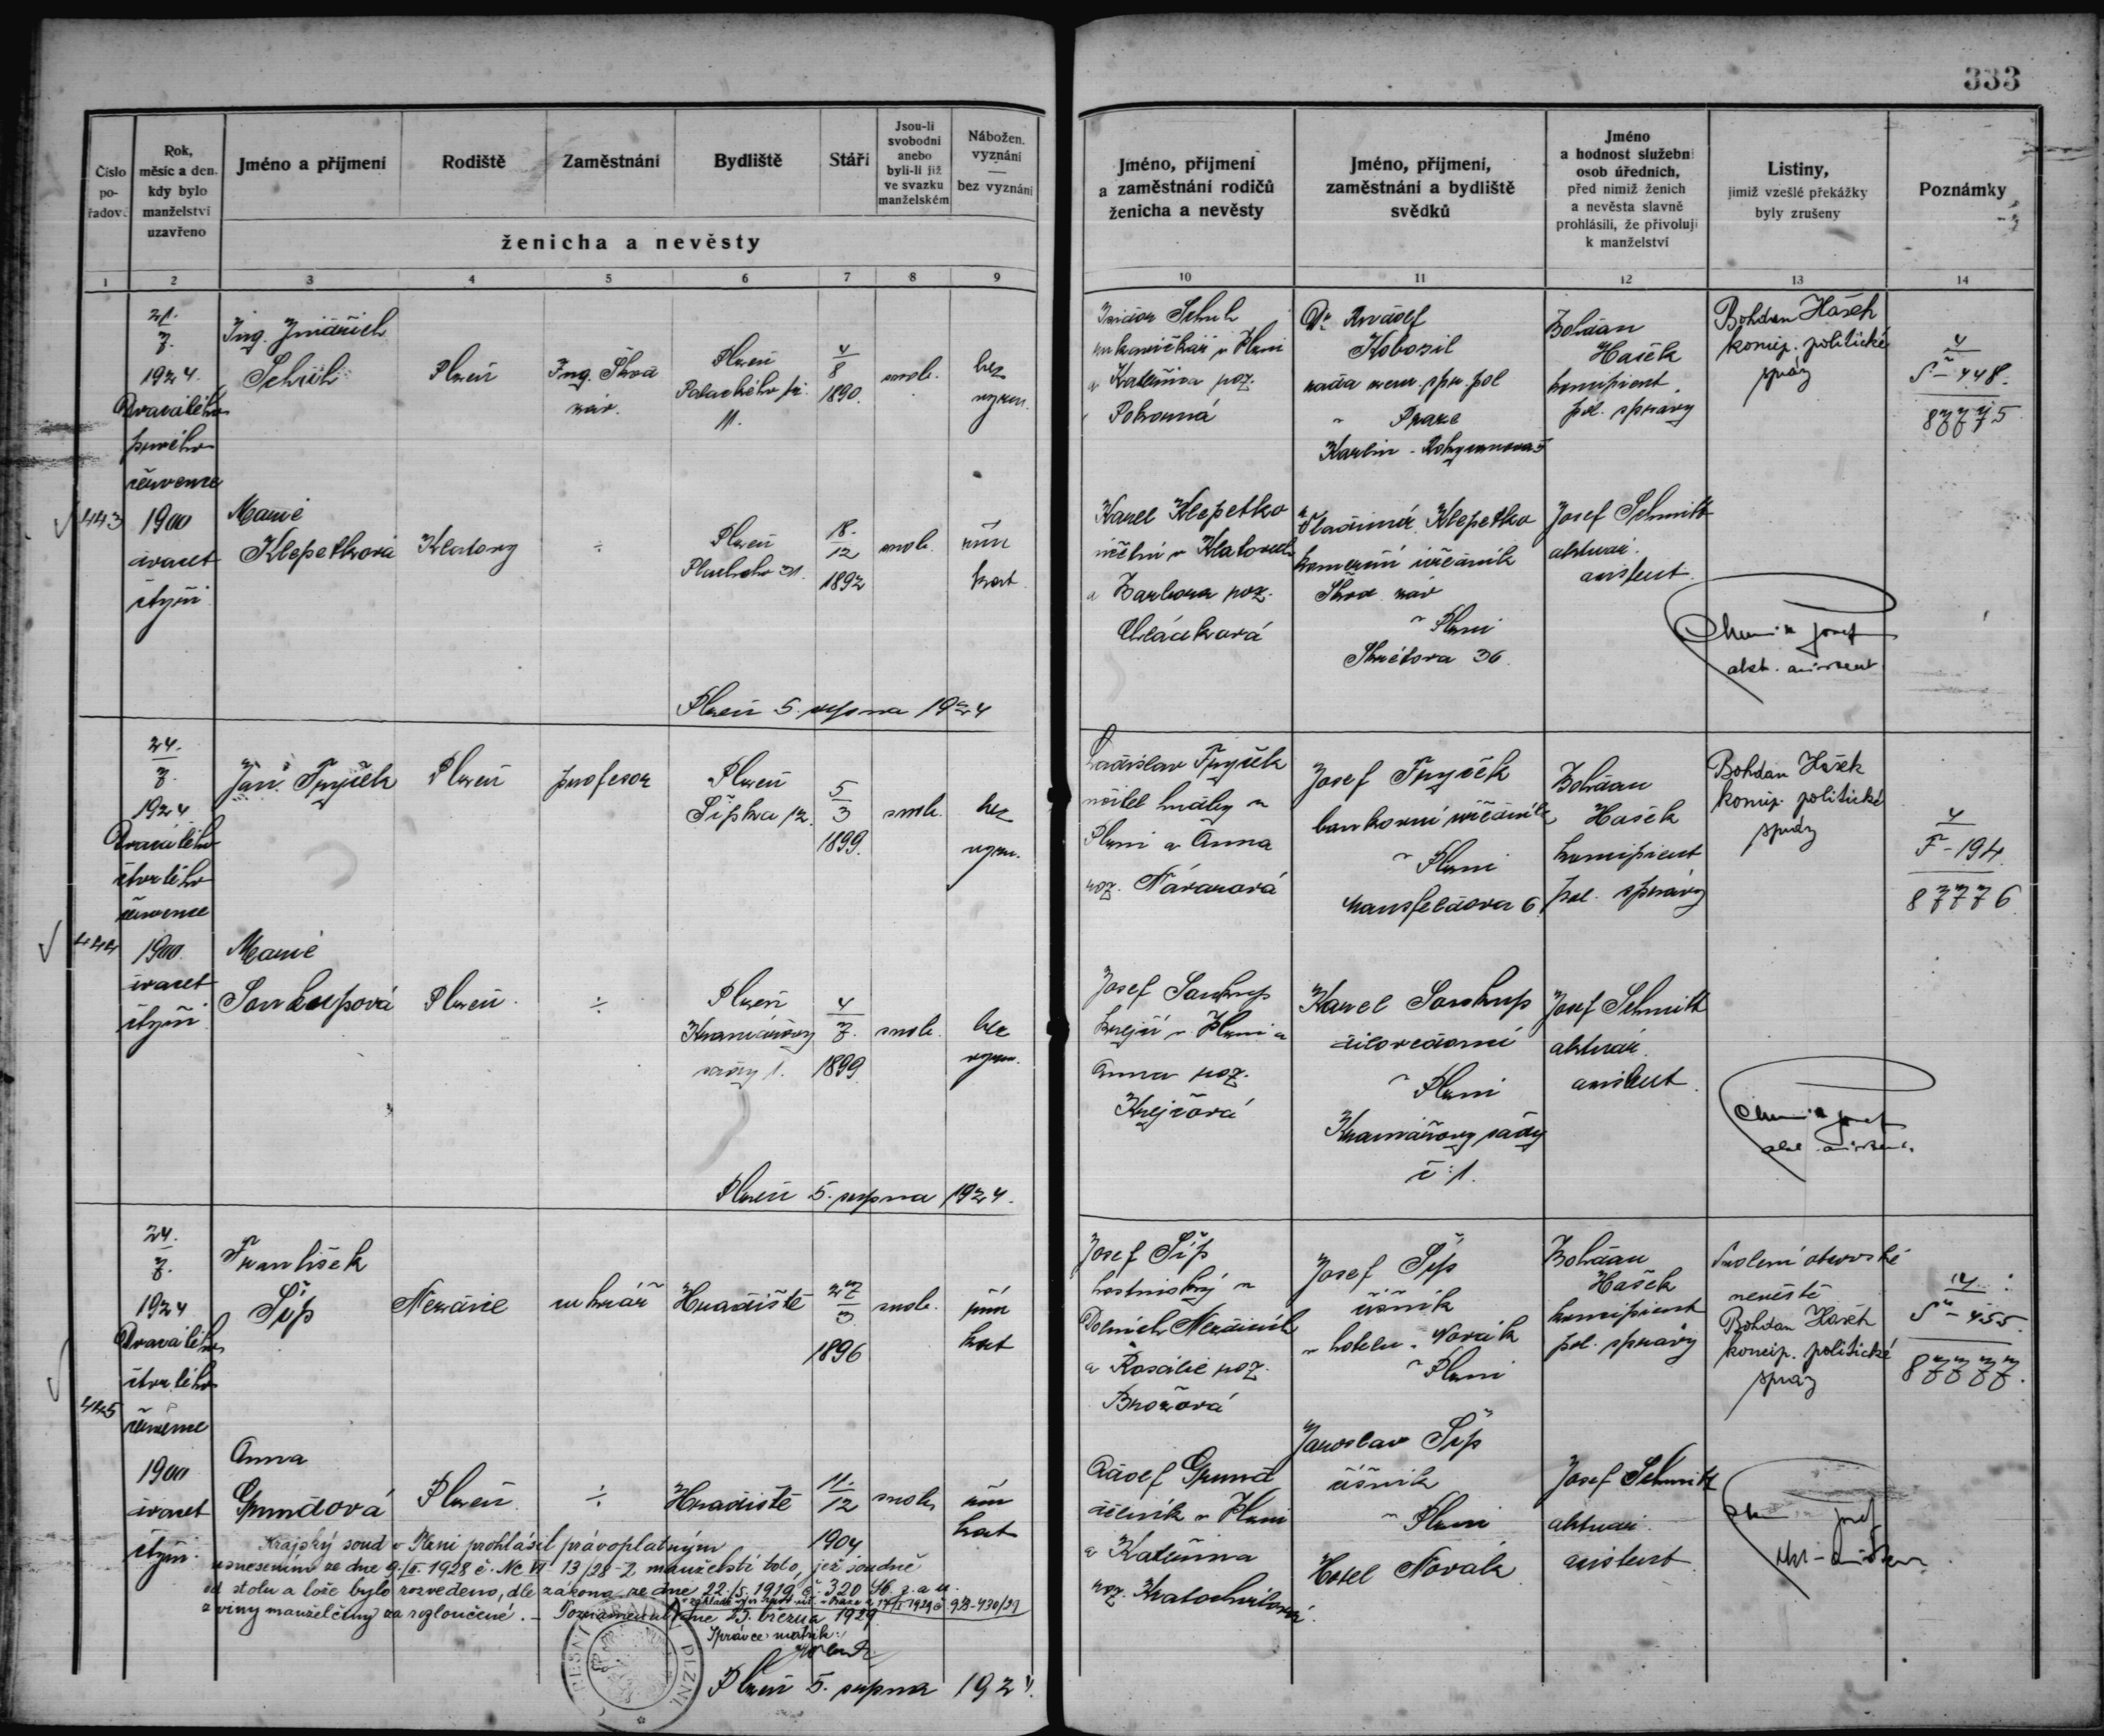 333
Číslo pořadov.
Rok, měsíc a den, kdy bylo manželství uzavřeno
Jméno a příjmení
Rodiště
Zaměstnání
Bydliště
Stáří
Jsou-li svobodni anebo byli-li již ve svazku manželském
Nábožen. vyznání — bez vyznání
ženicha a nevěsty
Jméno, příjmení a zaměstnání rodičů ženicha a nevěsty
Jméno, příjmení, zaměstnání a bydliště svědků
Jméno a hodnost služební osob úředních, před nimiž ženich a nevěsta slavně prohlásili, že přivolují k manželství
Listiny, jimiž vzešlé překážky byly zrušeny
Poznámky
1 2 3 4 5 6 7 8 9 10 11 12 13 14
443
21./7. 1924
Dvacátého
prvého
července
1900
dvacet
čtyři
Ing. Jindřich
Schuh
Plzeň
Ing. Škod. záv.
Plzeň
Palackého
11.
4/8 1890
svob.
bez vyzn.
Schuh
v Plzni
a Kateřina roz.
Pokorná
Dr. Rudolf
Kohosil
v Praze
Karlín
Bohdan
Hašek
koncipient
pol. správy
Bohdan Hašek
koncip. politické
správy
4
S-448.
87775
Marie
Klepetková
Klatovy
÷
Plzeň
31.
18./12 1892
svob.
řím. kat.
Karel Klepetko
v Klatovech
a Barbora roz.
Vladimír Klepetko
úředník
Škod. záv.
v Plzni
Skrétova 36.
Josef Schmitt
aktuár.
asistent.
Plzeň 5. srpna 1924
444
24./7. 1924
Dvacátého
čtvrtého
července
1900
dvacet
čtyři
Jan Fryček
Plzeň
profesor
Plzeň
Šípka 12.
5/3 1899.
svob.
bez vyzn.
Ladislav Fryček
učitel hudby v
Plzni a Anna
roz.
Josef Fryček
bankovní úředník
v Plzni
Mansfeldova 6.
Bohdan
Hašek
koncipient
pol. správy
Bohdan Hašek
koncip. politické
správy
4
F-194.
87776
Marie
Soukupová
Plzeň
÷
Plzeň
Kramářovy
sady 1.
4/7. 1899
svob.
bez vyzn.
Josef Soukup
krejčí v Plzni a
Anna roz.
Krejčová
Karel Soukup
v Plzni
Kramářovy sady
č. 1.
Josef Schmitt
aktuár.
asistent.
Plzeň 5. srpna 1924.
445
24./7. 1924
Dvacátého
čtvrtého
července
1900
dvacet
čtyři
František
Šíp
Nezdice
cukrář
Hradiště
27/3 1896
svob.
řím. kat.
Josef Šíp
hostinský v
Dolních Nezdicích
a Rosalie roz.
Brožová
Josef Šíp
číšník
v hotelu Novák
v Plzni
Bohdan
Hašek
koncipient
pol. správy
Svolení otcovské
nevěstě
Bohdan Hašek
koncip. politické
správy
4
S-455.
87777.
Anna
Grundová
Plzeň
÷
Hradiště
11/12 1904
svob.
řím. kat.
Adolf Grund
dělník v Plzni
a Kateřina
roz. Kratochvílová
Jaroslav Šíp
číšník
v Plzni
Hotel Novák
Josef Schmitt
aktuár.
asistent
Krajský soud v Plzni prohlásil právoplatným
usnesením ze dne 9./II. 1928 č. Nc VI 13/28-2 manželství toto, jež soudně
od stolu a lože bylo rozvedeno, dle zákona ze dne 22./5. 1919 č. 320 Sb. z. a n.
z viny manželčiny za rozloučené. – Poznamenáno dne 25. března 1929
Správce matrik:
Plzeň 5. srpna 1924.